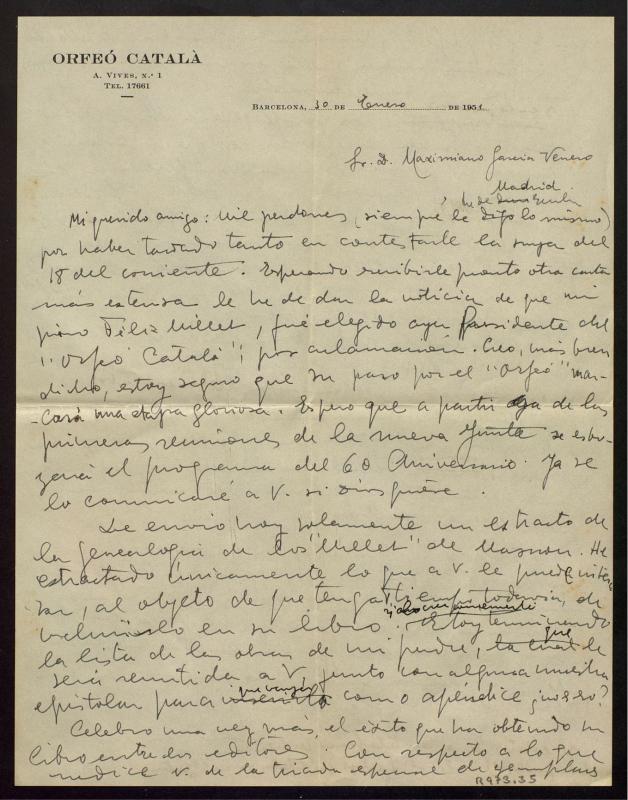 ORFEÓ CATALÀ
A. VIVES, N.º 1
TEL. 17661
BARCELONA, 30 DE Enero DE 1951
Sr. D. Maximiano Garcia Venero
Madrid.
Mi querido amigo: Mil perdones (siempre le digo lo mismo)
por haber tardado tanto en contestarle la suya del
18 del corriente. Esperando escribirle pronto otra carta
más extensa le he de dar la noticia de que mi
primo Félix Millet, fué elegido ayer Presidente del
"Orfeó Català", por aclamación. Creo, más bien
dicho, estoy seguro que su paso por el "Orfeó" mar-
-cará una etapa gloriosa. Espero que a partir de las
primeras reuniones de la nueva Junta se esbo-
zará el programa del 60 Aniversario. Ya se
lo comunicaré a V. si Dios quiere.
Le envío hoy solamente un extracto de
la genealogia de los "Millet" de Masnou. He
extractado únicamente lo que a V. le puede intere
sar, al objeto de que tenga tiempo todavia, de
incluírlo en su libro. Estoy terminando
la lista de las obras de mi padre, que
será remitida a V. junto con alguna muestra
epistolar para como apéndice ¿no es eso?
Celebro una vez más, el éxito que ha obtenido su
libro entre los editores. Con respecto a lo que
me dice V. de la tirada especial de ejemplares
R973.35